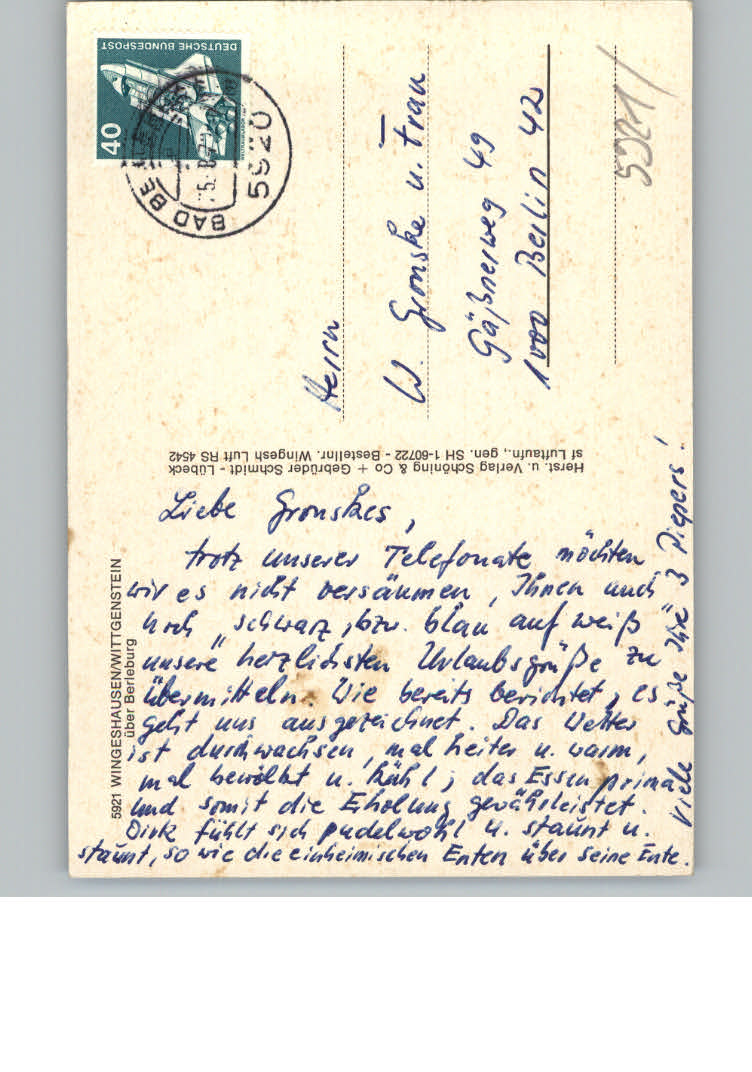 Liebe Gronskes,
trotz unserer Telefonate möchten
wir es nicht versäumen, Ihnen auch
noch "schwarz", bzw. blau auf weiß
unsere herzlichsten Urlaubsgrüße zu
übermitteln. Wie bereits berichtet, es
geht uns ausgezeichnet. Das Wetter
ist durchwachsen, mal heiter u. warm,
mal bewölkt u. kühl; das Essen prima
und somit die Erholung gewährleistet.
Dirk fühlt sich pudelwohl u. staunt u.
staunt, so wie die einheimischen Enten über seine Ente.
Viele Grüße Ihre 3 Piepers!
5921 WINGESHAUSEN/WITTGENSTEIN
über Berleburg
Herst. u. Verlag Schöning & Co + Gebrüder Schmidt - Lübeck
sf Luftaufn., gen. SH 1-60722 - Bestellnr. Wingesh Luft RS 4542
DEUTSCHE BUNDESPOST
40
5920
BAD BE
Herrn
W. Gronske u. Frau
Gäßnerweg 49
1000 Berlin 42
5921/